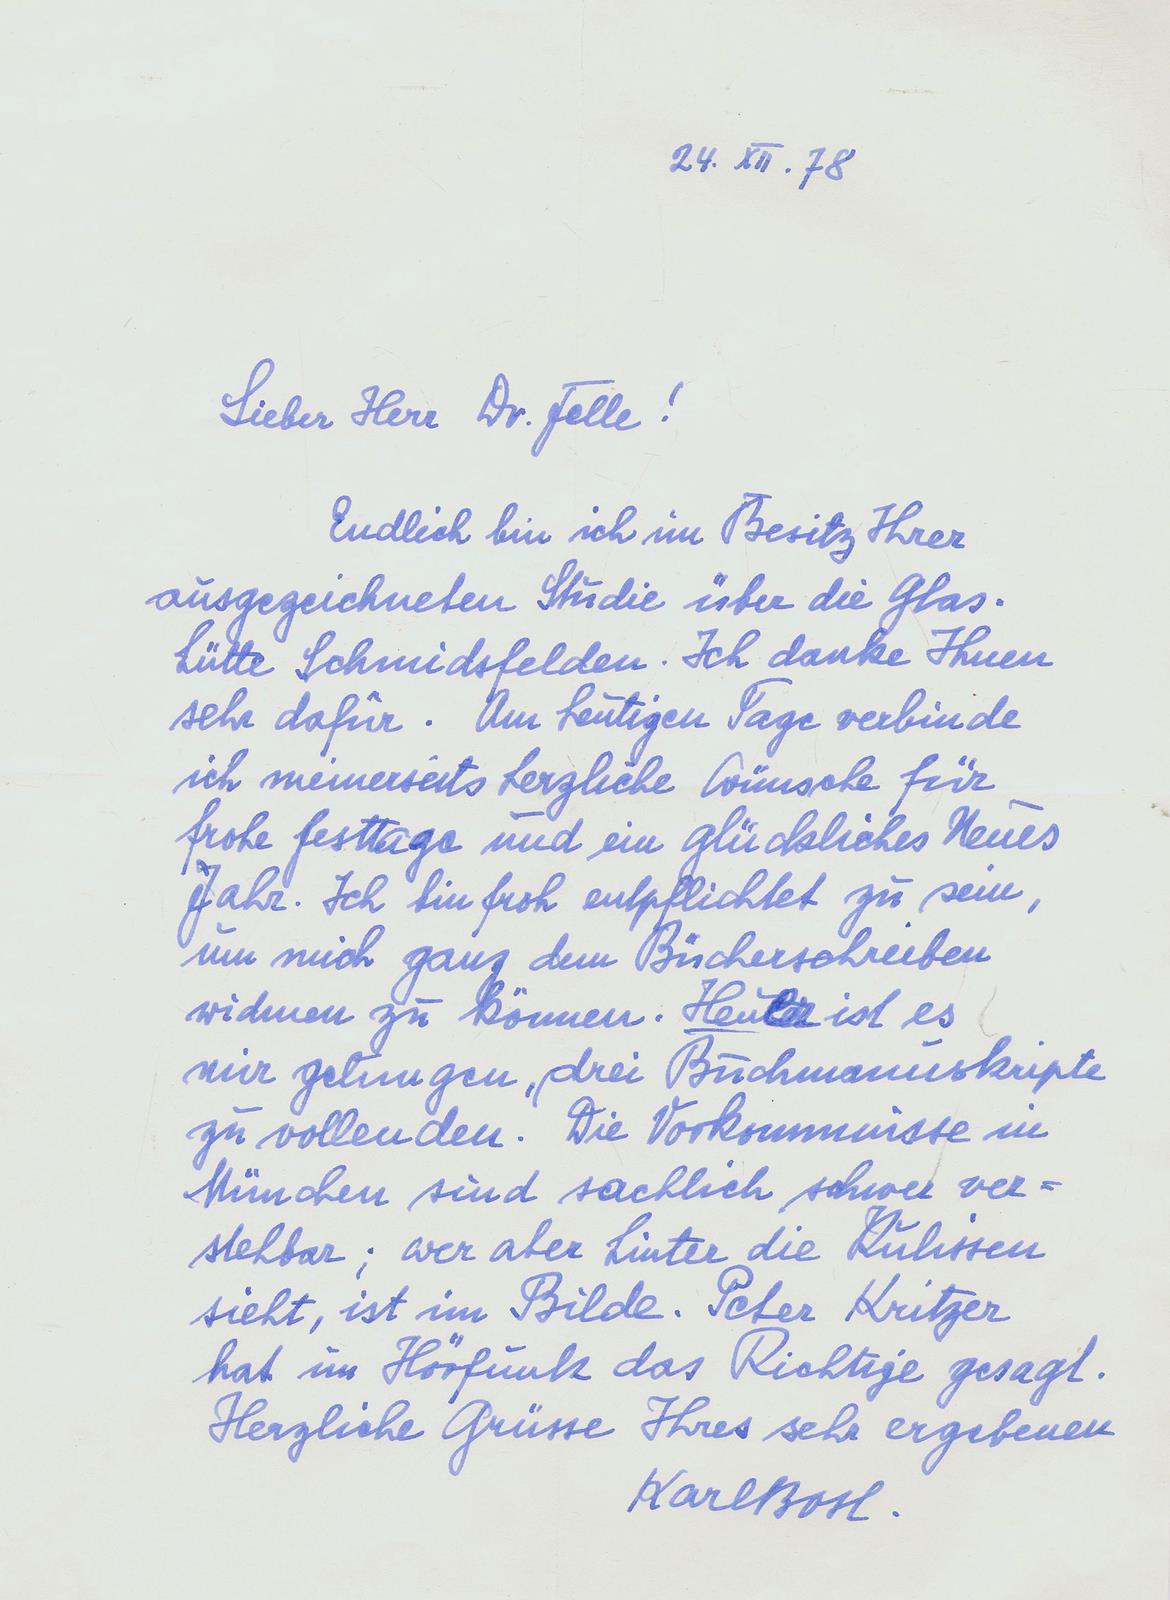 24. XII. 78
Lieber Herr Dr. Felle!
Endlich bin ich im Besitz Ihrer
ausgezeichneten Studie über die Glas-
hütte Schmidsfelden. Ich danke Ihnen
sehr dafür. Am heutigen Tage verbinde
ich meinerseits herzliche Wünsche für
frohe Festtage und ein glückliches Neues
Jahr. Ich bin froh entpflichtet zu sein,
um mich ganz dem Bücherschreiben
widmen zu können. Heuer ist es
mir gelungen, drei Buchmanuskripte
zu vollenden. Die Vorkommnisse in
München sind sachlich schwer ver=
stehbar; wer aber hinter die Kulissen
sieht, ist im Bilde. Peter Kritzer
hat im Hörfunk das Richtige gesagt.
Herzliche Grüsse Ihres sehr ergebenen
Karl Bosl.